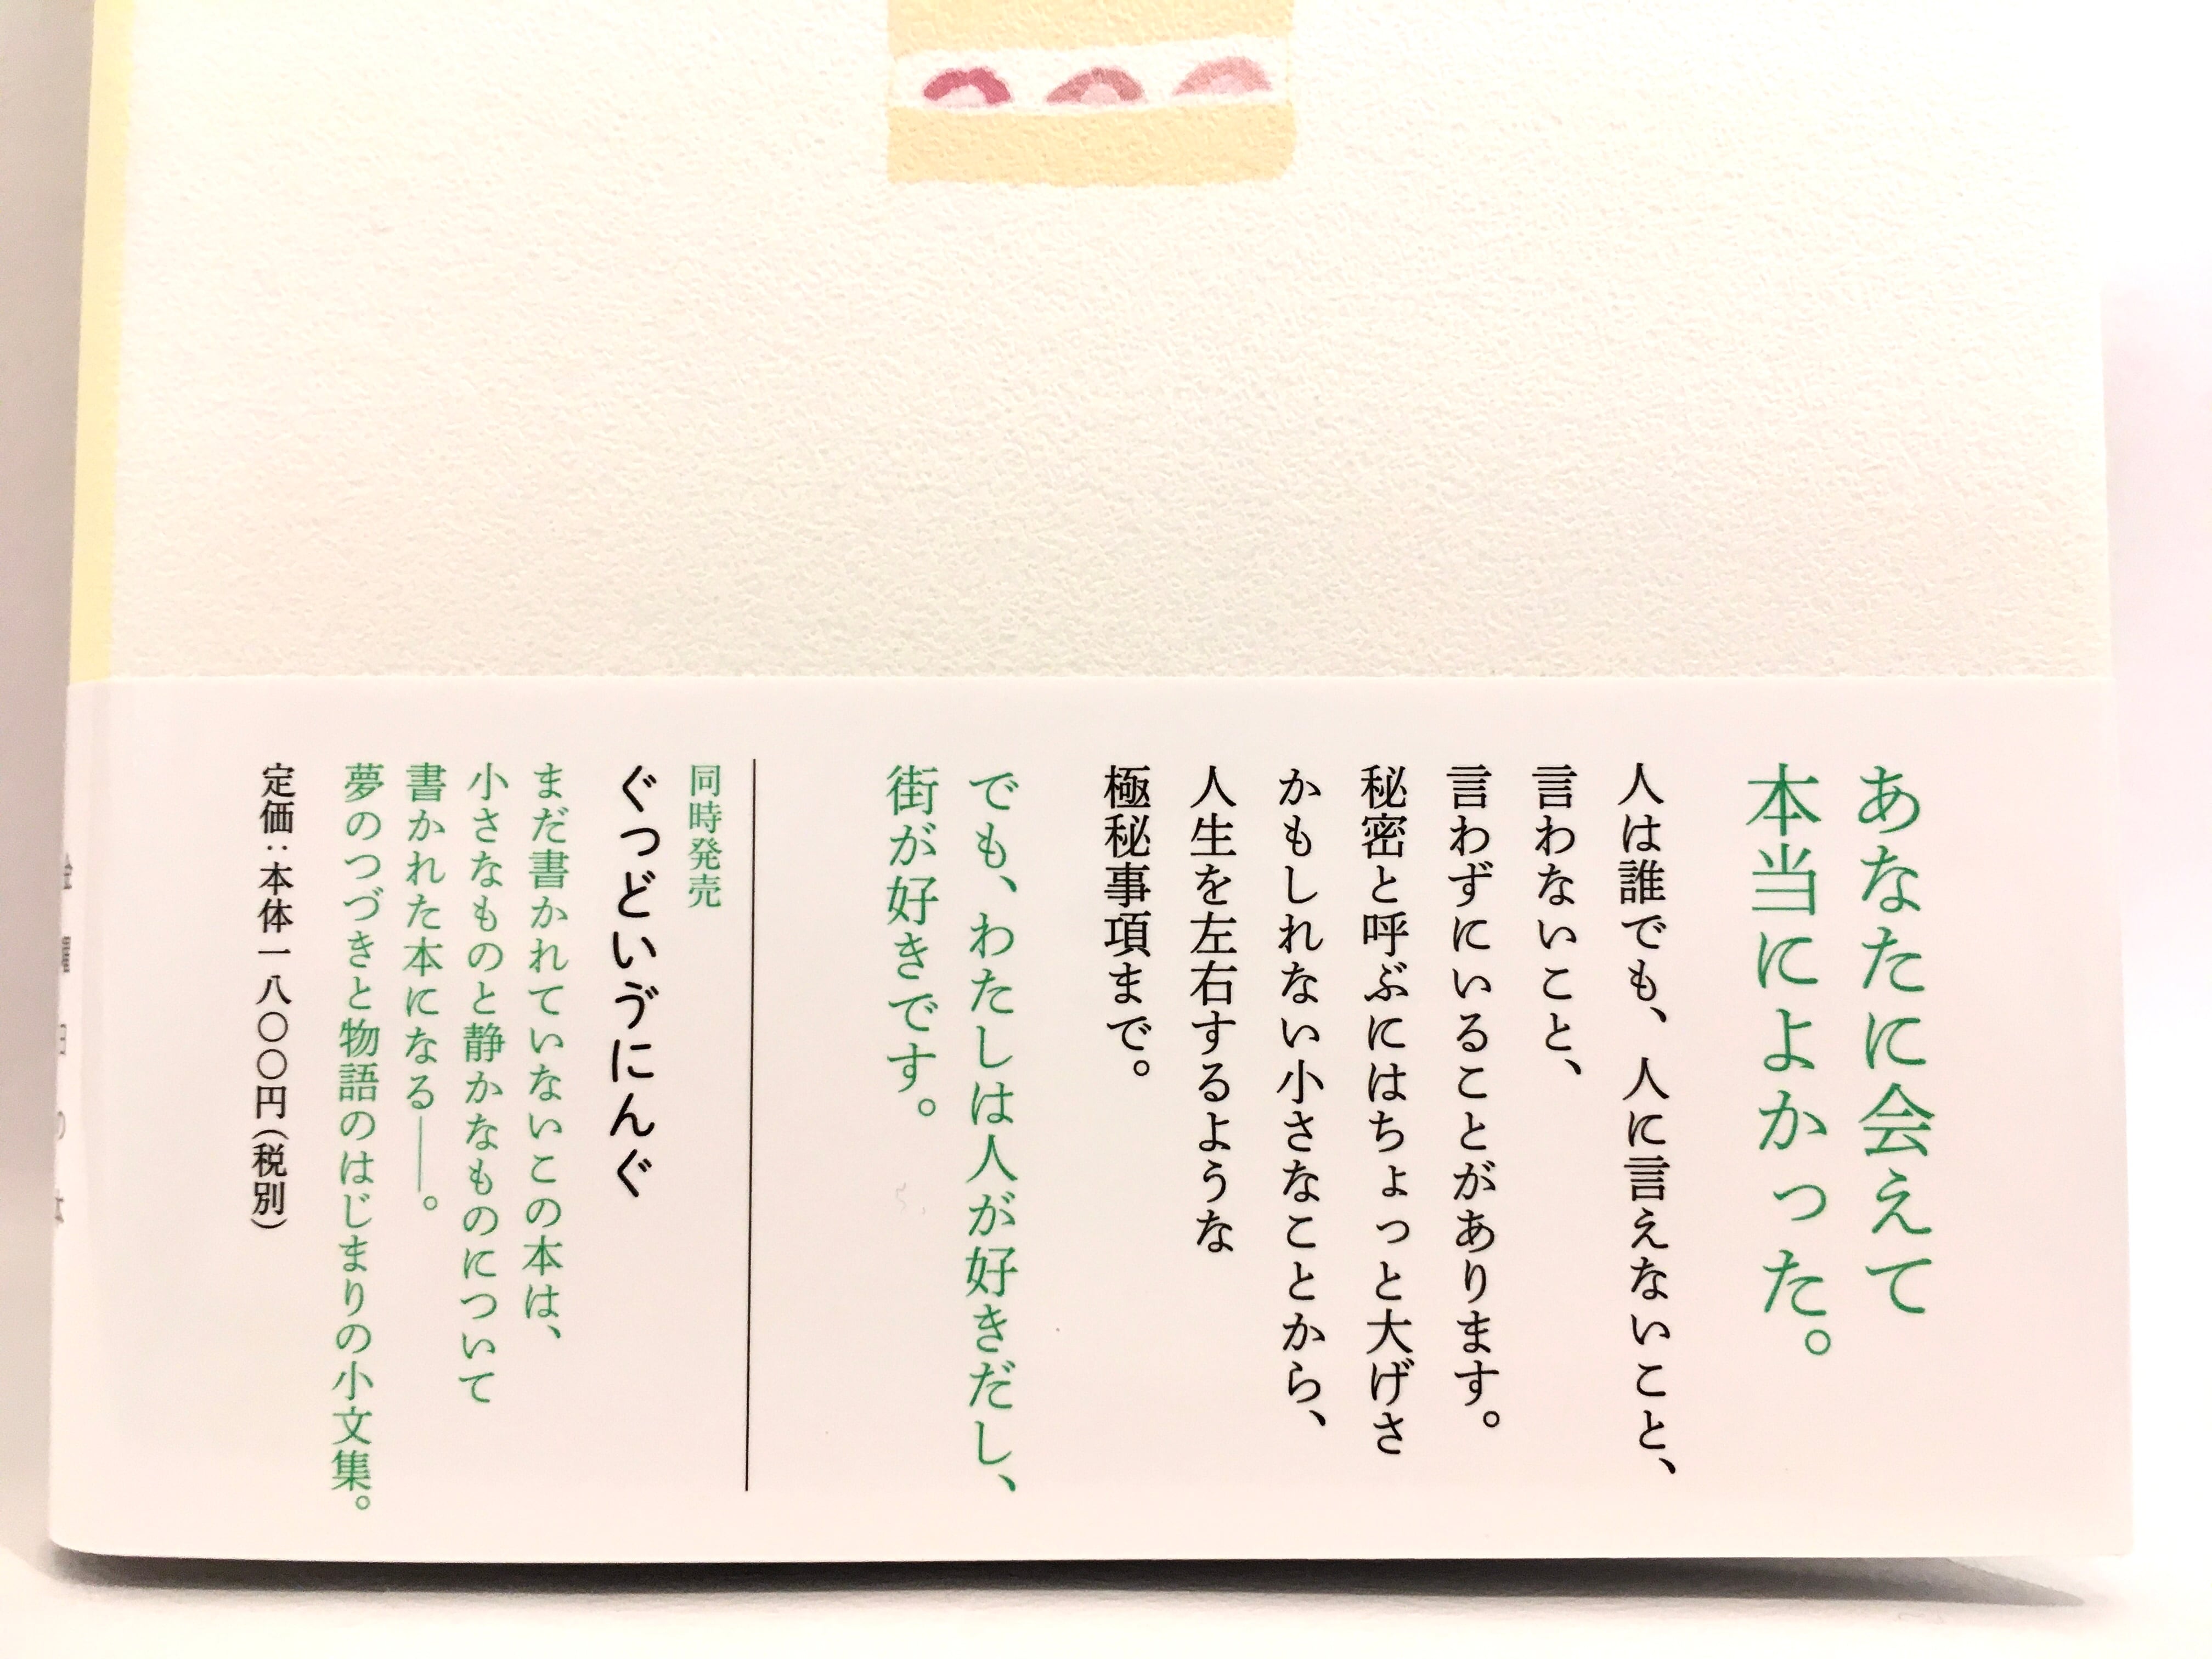 あなたに会えて
本当によかった。
人は誰でも、人に言えないこと、
言わないこと、
言わずにいることがあります。
秘密と呼ぶにはちょっと大げさ
かもしれない小さなことから、
人生を左右するような
極秘事項まで。
でも、わたしは人が好きだし、
街が好きです。
同時発売
ぐっどいゔにんぐ
まだ書かれていないこの本は、
小さなものと静かなものについて
書かれた本になる——。
夢のつづきと物語のはじまりの小文集。
定価：本体一八〇〇円（税別）